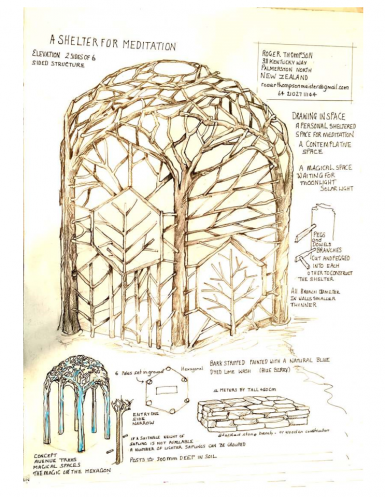 A SHELTER FOR MEDITATION
ELEVATION 2 SIDES OF 6
SIDED STRUCTURE
ROGER THOMPSON
38 KENTUCKY WAY
PALMERSTON NORTH
NEW ZEALAND
DRAWING IN SPACE
A PERSONAL SHELTERED
SPACE FOR MEDITATION
A CONTEMPLATIVE
SPACE
A MAGICAL SPACE
WAITING FOR
MOONLIGHT
SOLAR LIGHT
PEGS
and
DOWELS
BRANCHES
CUT AND PEGGED
INTO EACH
OTHER TO CONSTRUCT
THE SHELTER.
BRANCH DIAMETER
IN WALLS SMALLER
THINNER
BARK STRIPPED PAINTED WITH A NATURAL BLUE
DYED LIME WASH (BLUE BERRY)
6 Poles set in ground
Hexagonal
METERS BY TALL
ENTRY ONE
SIDE
NARROW
IF A SUITABLE HEIGHT OF
SAPLING IS NOT AVAILABLE
A NUMBER OF LIGHTER SAPLINGS CAN BE GROUPED
POSTS 300MM DEEP IN SOIL
CONCEPT
AVENUE TREES
MAGICAL SPACES
THE MAGIC OF THE HEXAGON